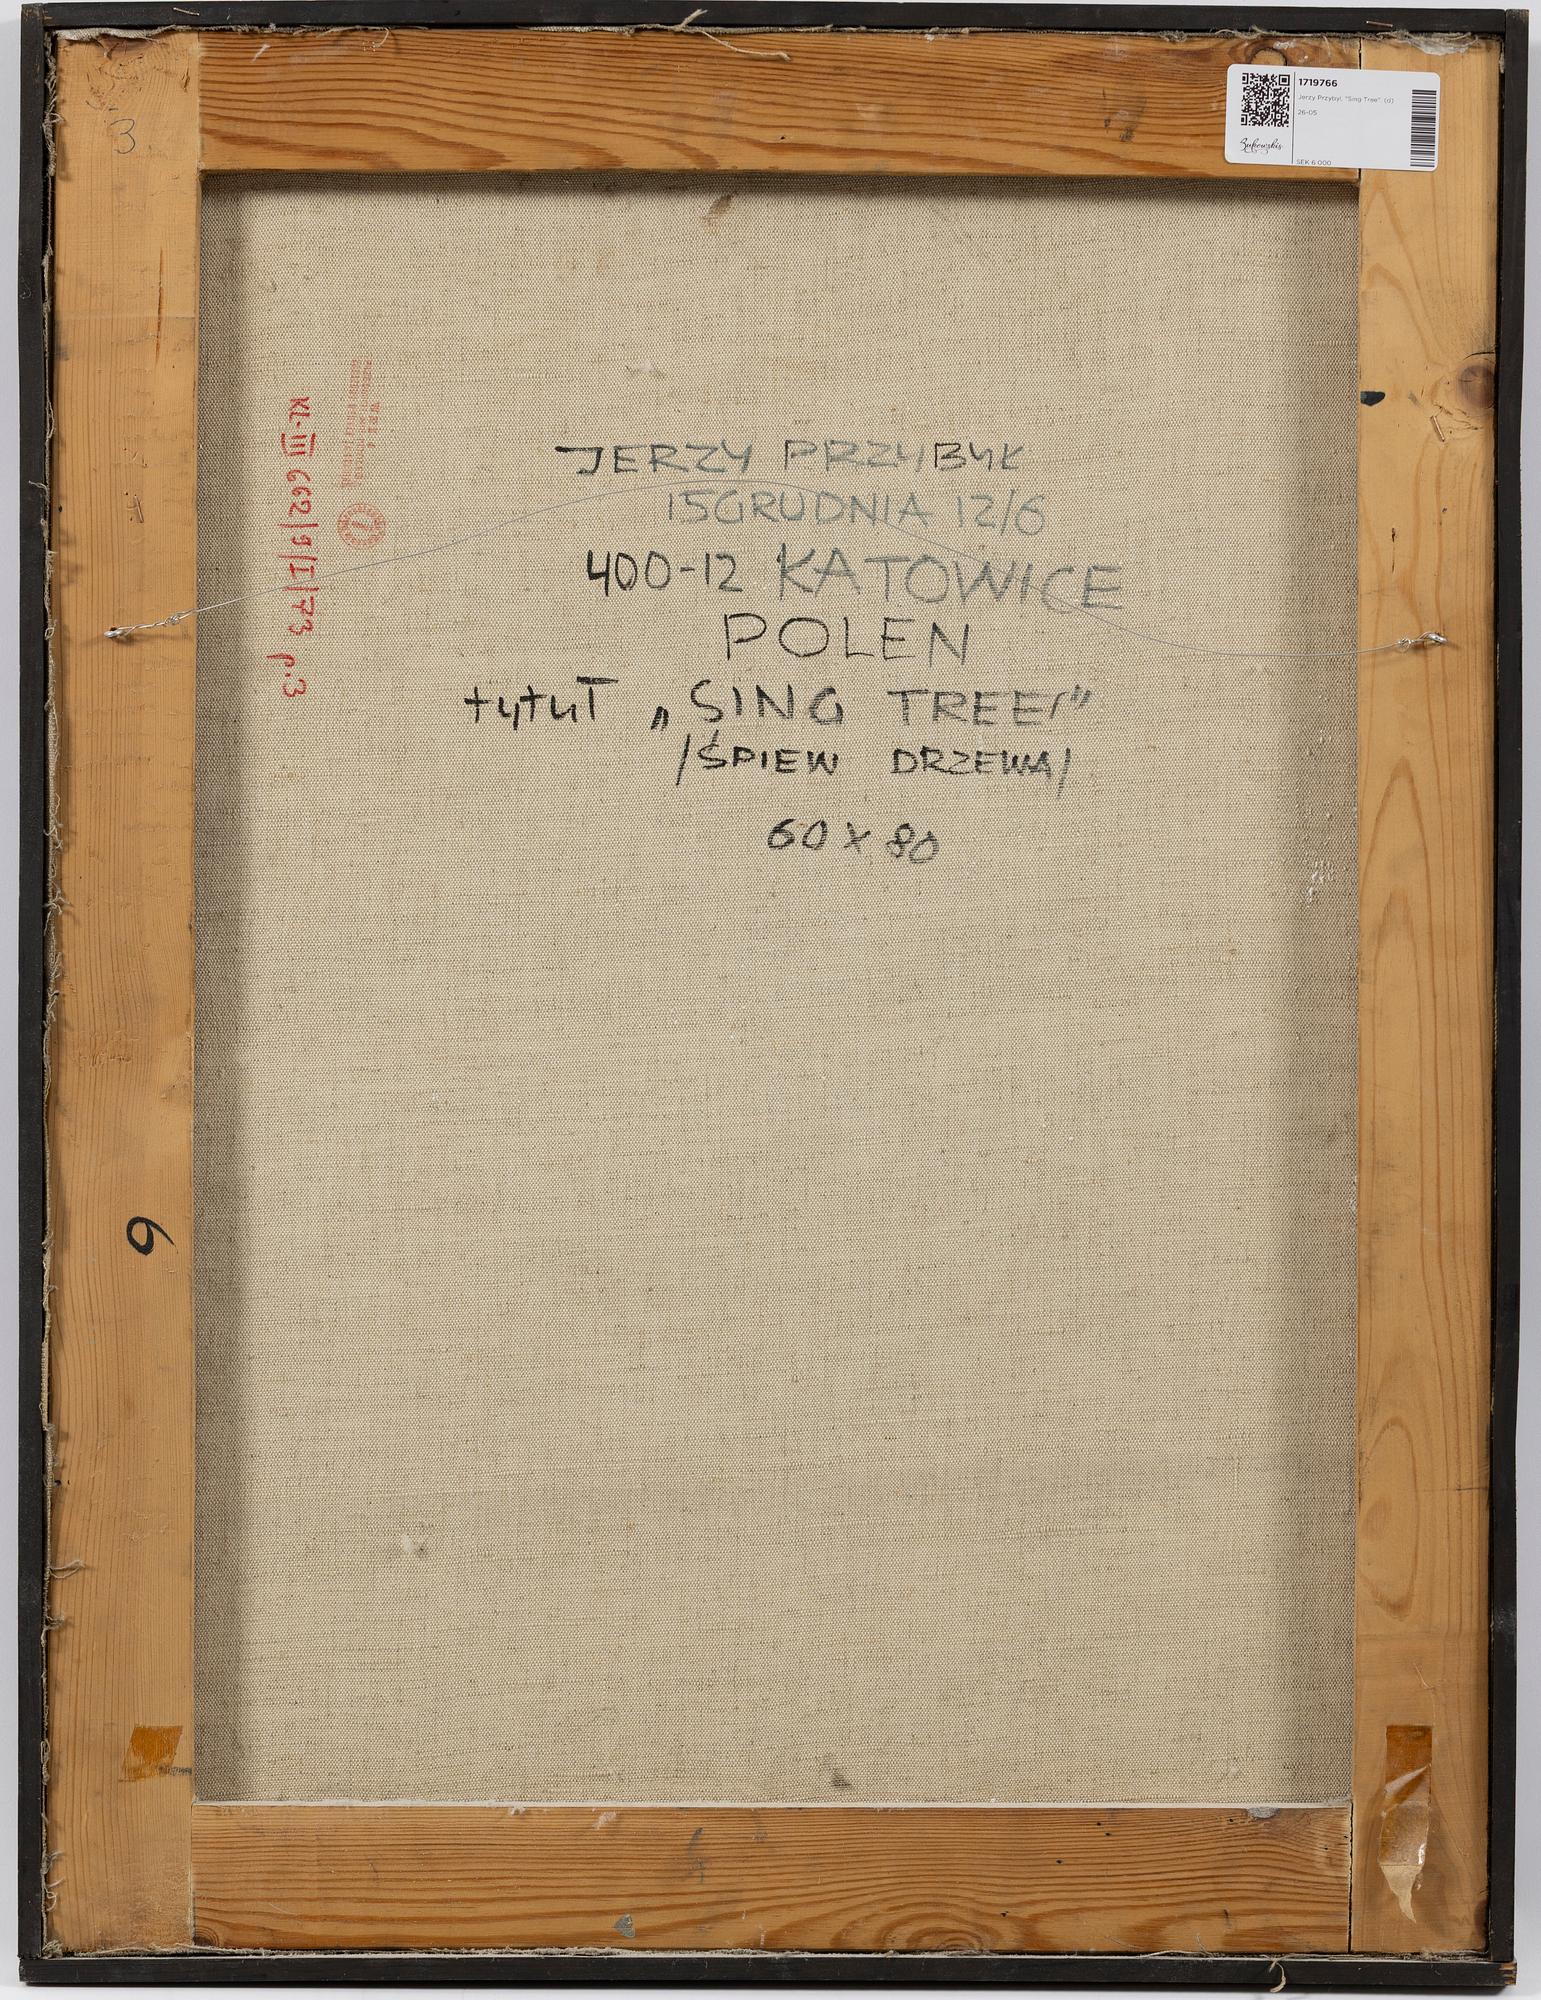 1719766
Jerzy Przybyl. "Sing Tree". (d)
26-05
Bukowskis
SEK 6 000
3
KL-III 662/9/I/73 p.3
JERZY PRZYBYŁ
15 GRUDNIA 12/6
400-12 KATOWICE
POLEN
tytuł „SING TREE"
/ŚPIEW DRZEWA/
60 x 80
6